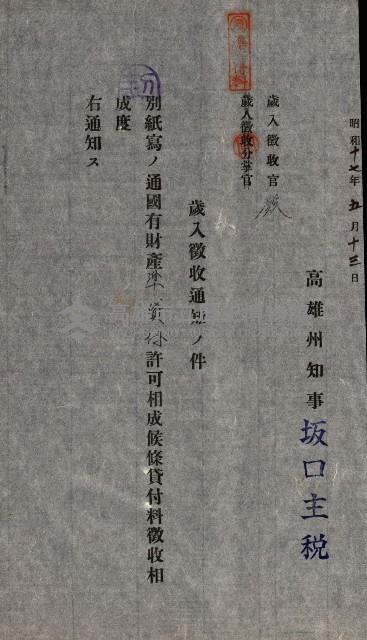 昭和十七年五月十三日
高雄州知事 坂口主税
歲入徵收官 殿
歲入徵收分掌官
歲入徵收通知ノ件
別紙寫ノ通國有財產 許可相成候條貸付料徵收相
成度
右通知ス